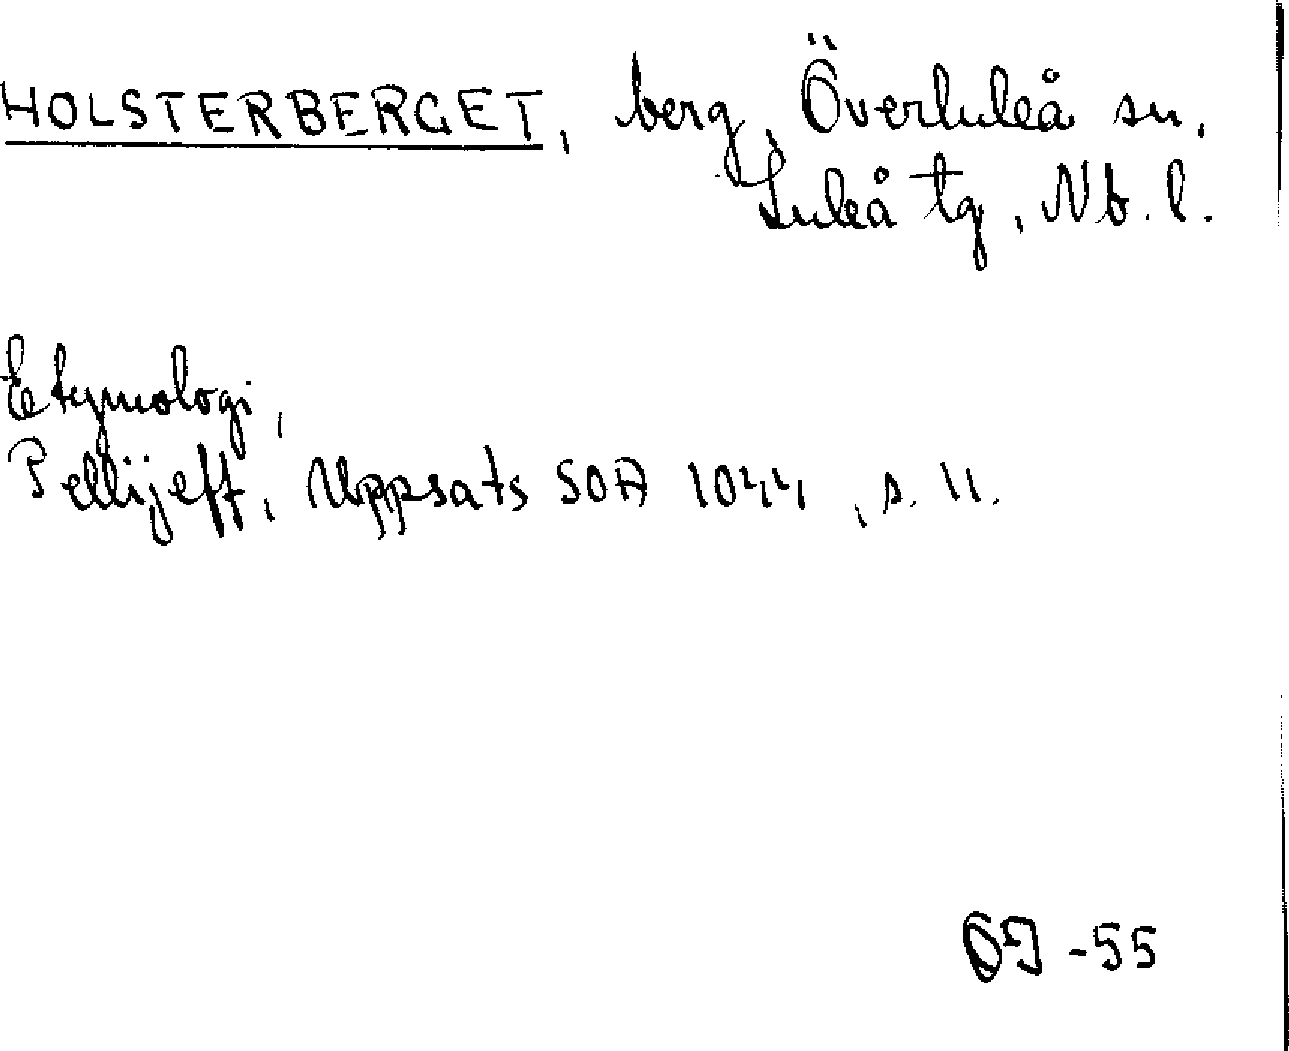 HOLSTERBERGET, berg, Överluleå sn,
Luleå tg, Nb. l.
Etymologi,
Pellijeff, Uppsats SOA 1044, s. 11.
-55